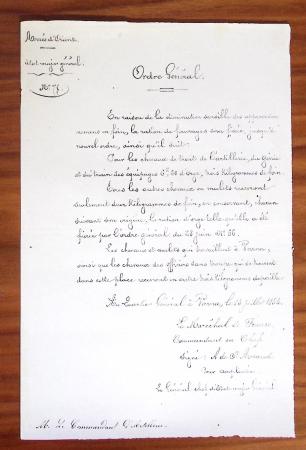 Armée d'Orient.
Etat-major général.
N° 77.
Ordre Général.
En raison de la diminution sensible des approvision-
nemens en foin, la ration de fourrages sera fixée, jusqu'à
nouvel ordre, ainsi qu'il suit:
Pour les chevaux de trait de l'artillerie, du Génie
et du train des équipages d'orge, trois kilogrammes de foin.
Tous les autres chevaux ou mulets recevront
seulement deux kilogrammes de foin, en conservant, chacun
suivant son origine, la ration d'orge telle qu'elle a été
fixée par l'ordre général du 28 juin N° 56.
Les chevaux et mulets qui travaillent à Varna,
ainsi que les chevaux des officiers sans troupe qui se trouvent
dans cette place recevront en outre trois kilogrammes de paille.
Au Quartier Général à Varna, le juillet 1854.
Le Maréchal de France,
Commandant en Chef,
Signé: A. de St Arnaud.
Pour ampliation:
Le Général chef d'Etat-major Général
M. Le Commandant d'Artillerie.